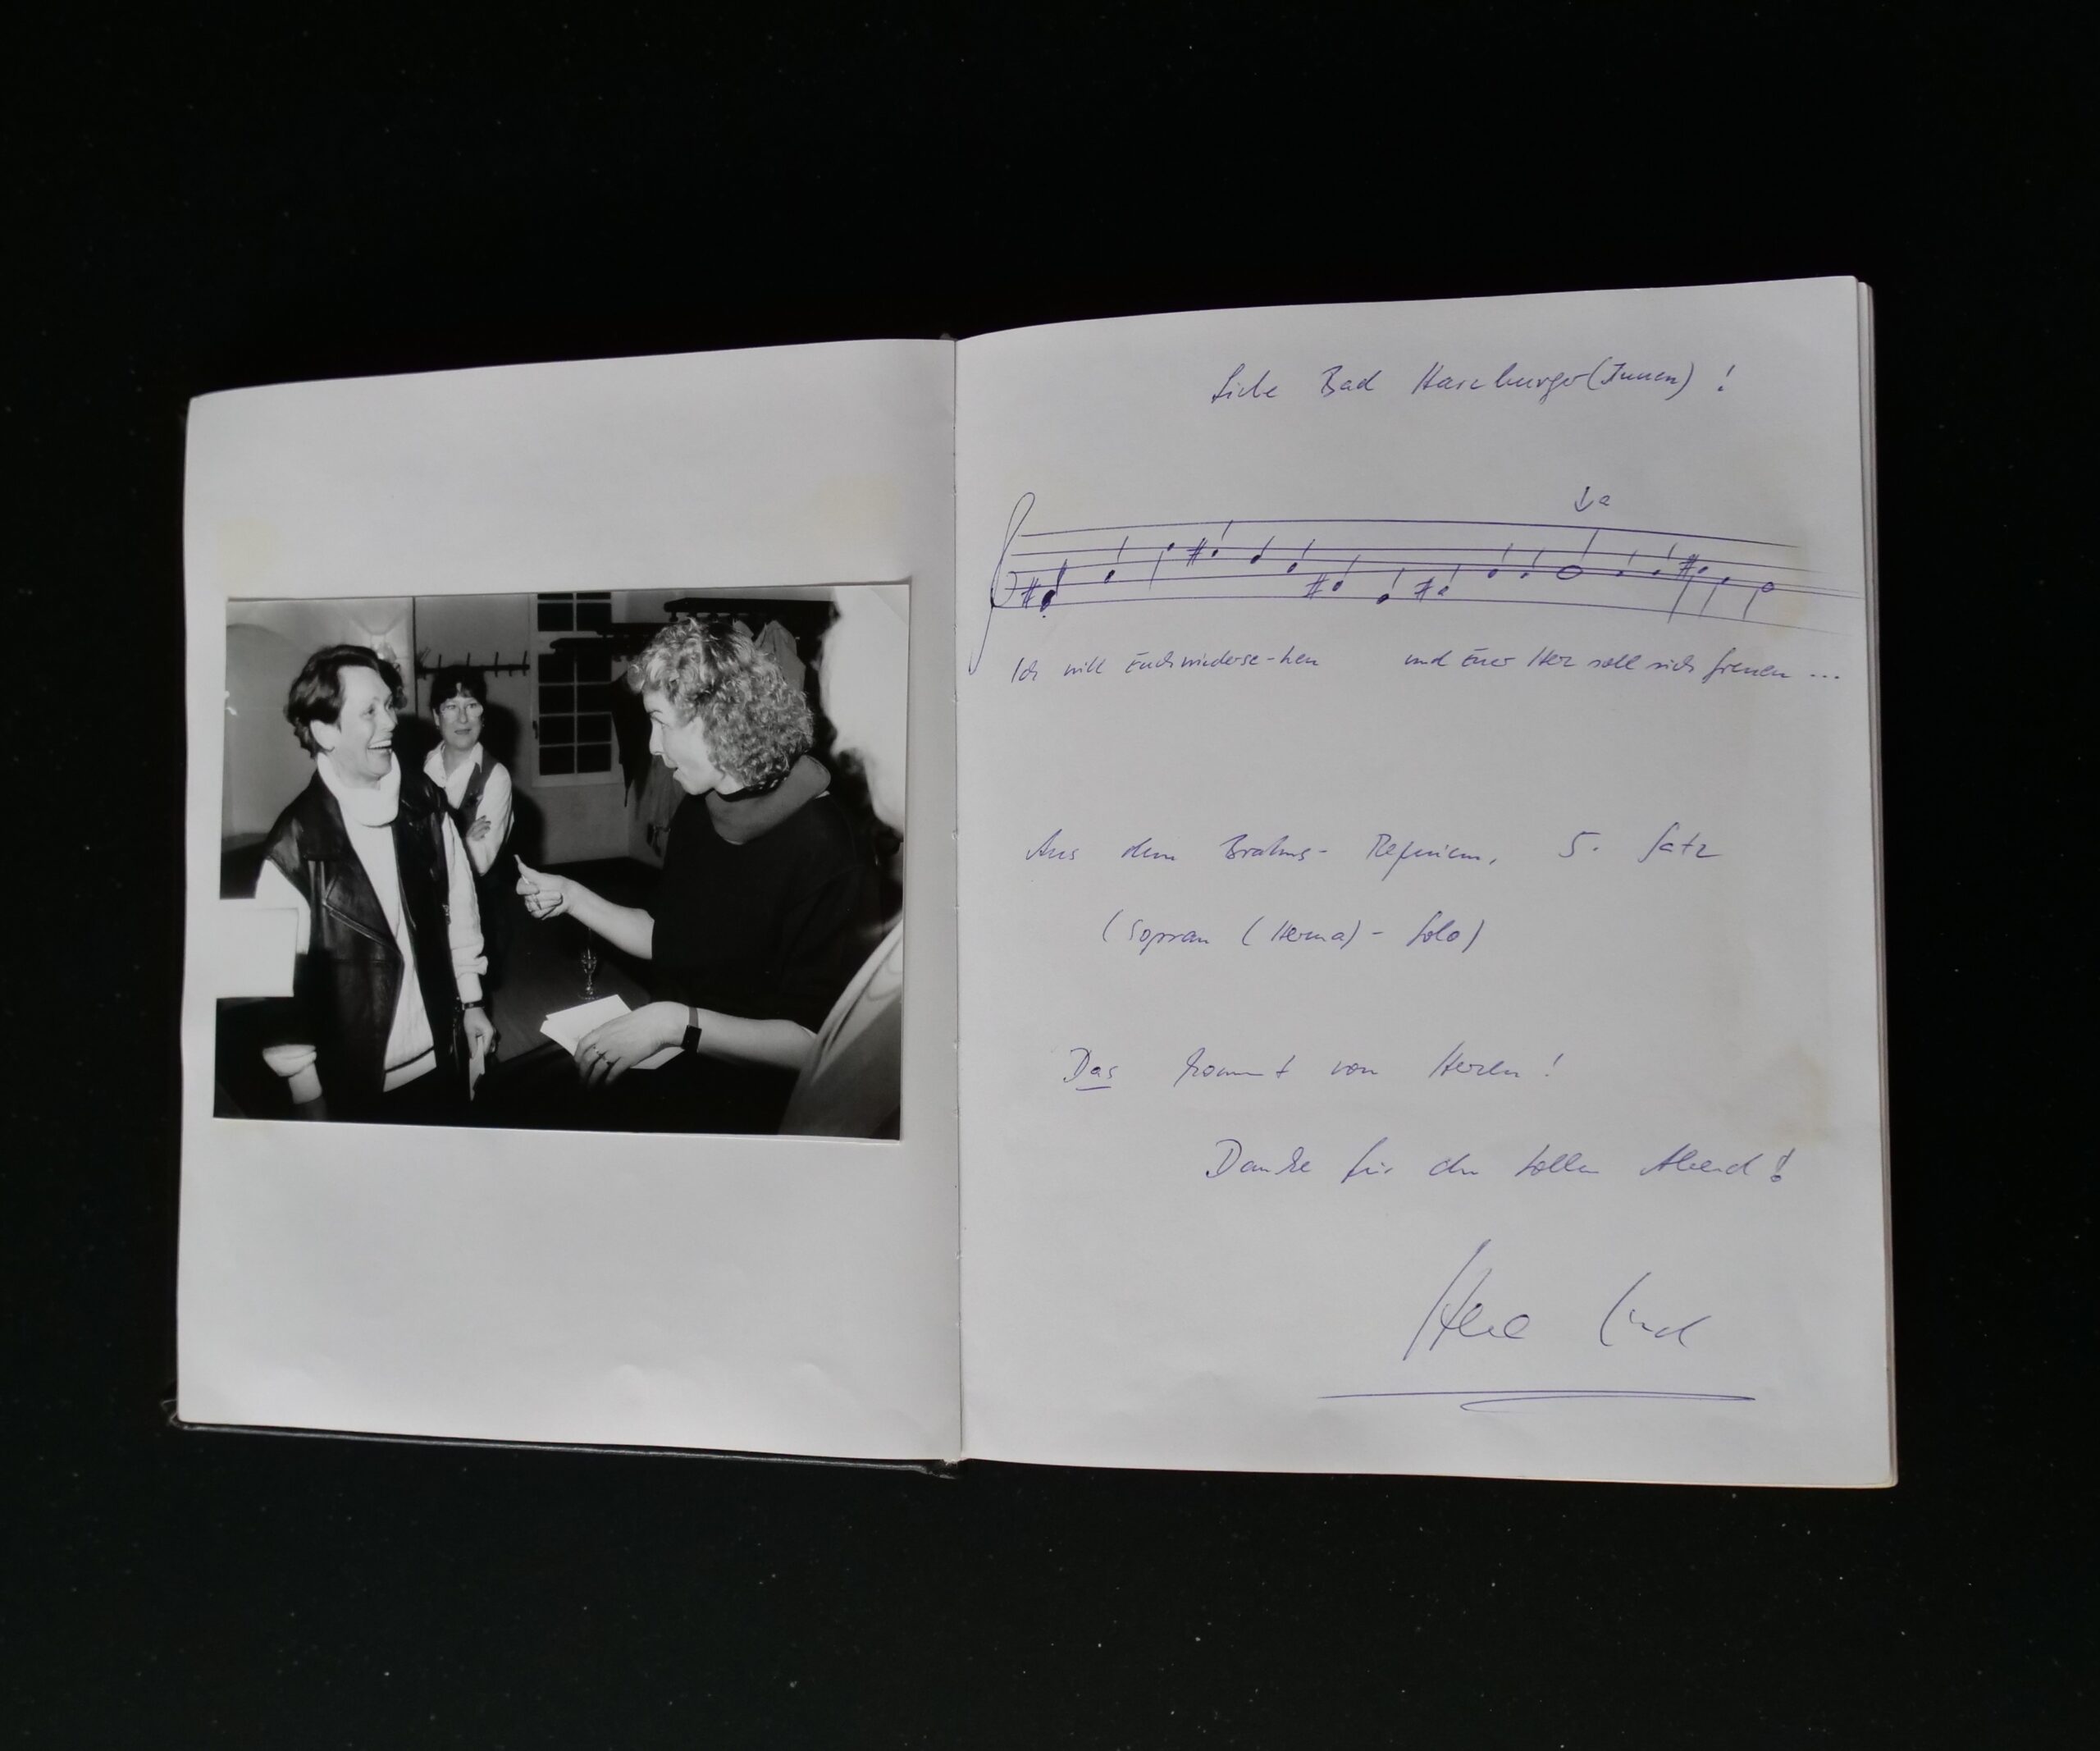 Liebe Bad Harzburger(Innen) !
a
Ich will Euch wiederse-hen und Euer Herz soll sich freuen ...
Aus dem Brahms- Requiem, 5. Satz
(Sopran (Herma) - Solo)
Das kommt von Herzen !
Danke für den tollen Abend !
Hera Lind